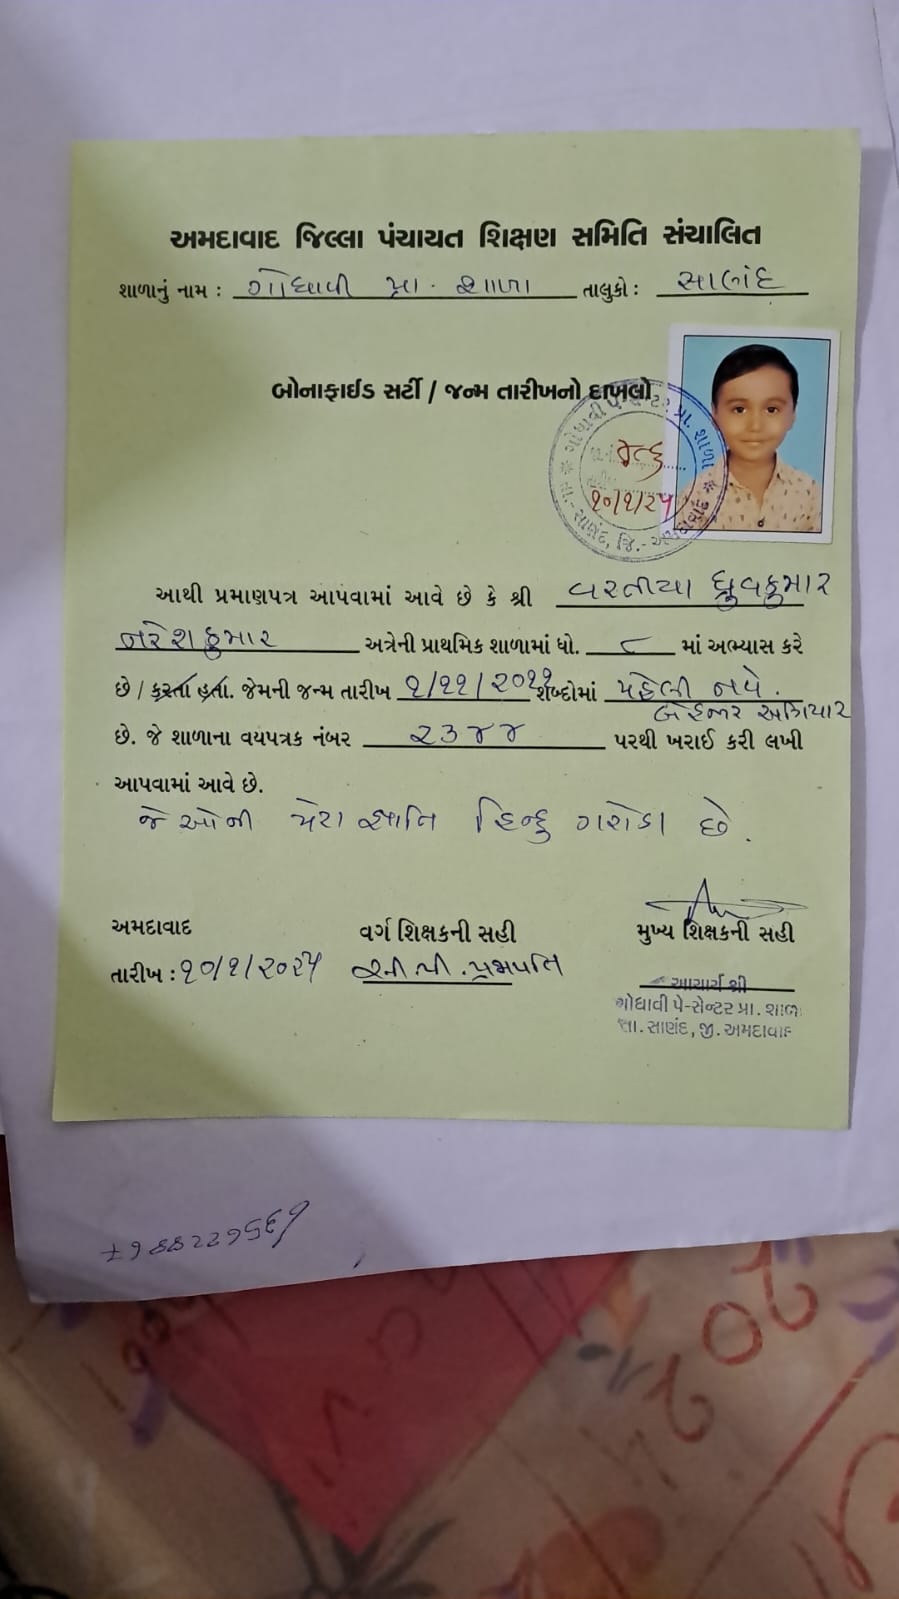 અમદાવાદ જિલ્લા પંચાયત શિક્ષણ સમિતિ સંચાલિત
શાળાનું નામ : ગોધાવી પ્રા. શાળા તાલુકો : સાણંદ
બોનાફાઈડ સર્ટી / જન્મ તારીખનો દાખલો
ગોધાવી પે-સેન્ટર પ્રા. શાળા
૧૦/૧/૨૫
તા.-સાણંદ, જિ.-અમદાવાદ
આથી પ્રમાણપત્ર આપવામાં આવે છે કે શ્રી વરતીયા ધ્રુવકુમાર
નરેશકુમાર અત્રેની પ્રાથમિક શાળામાં ધો. ૮ માં અભ્યાસ કરે
છે / કરતા હતા. જેમની જન્મ તારીખ ૧/૧૧/૨૦૧૧ શબ્દોમાં પહેલી નવે.
બેહજાર અગિયાર
છે. જે શાળાના વયપત્રક નંબર ૨૩૪૪ પરથી ખરાઈ કરી લખી
આપવામાં આવે છે.
જેઓની પેટા જ્ઞાતિ હિન્દુ ગરોડા છે.
અમદાવાદ વર્ગ શિક્ષકની સહી મુખ્ય શિક્ષકની સહી
તારીખ : ૧૦/૧/૨૦૨૫ પ્રજાપતિ
આચાર્ય શ્રી
ગોધાવી પે-સેન્ટર પ્રા. શાળા
તા. સાણંદ, જી. અમદાવાદ